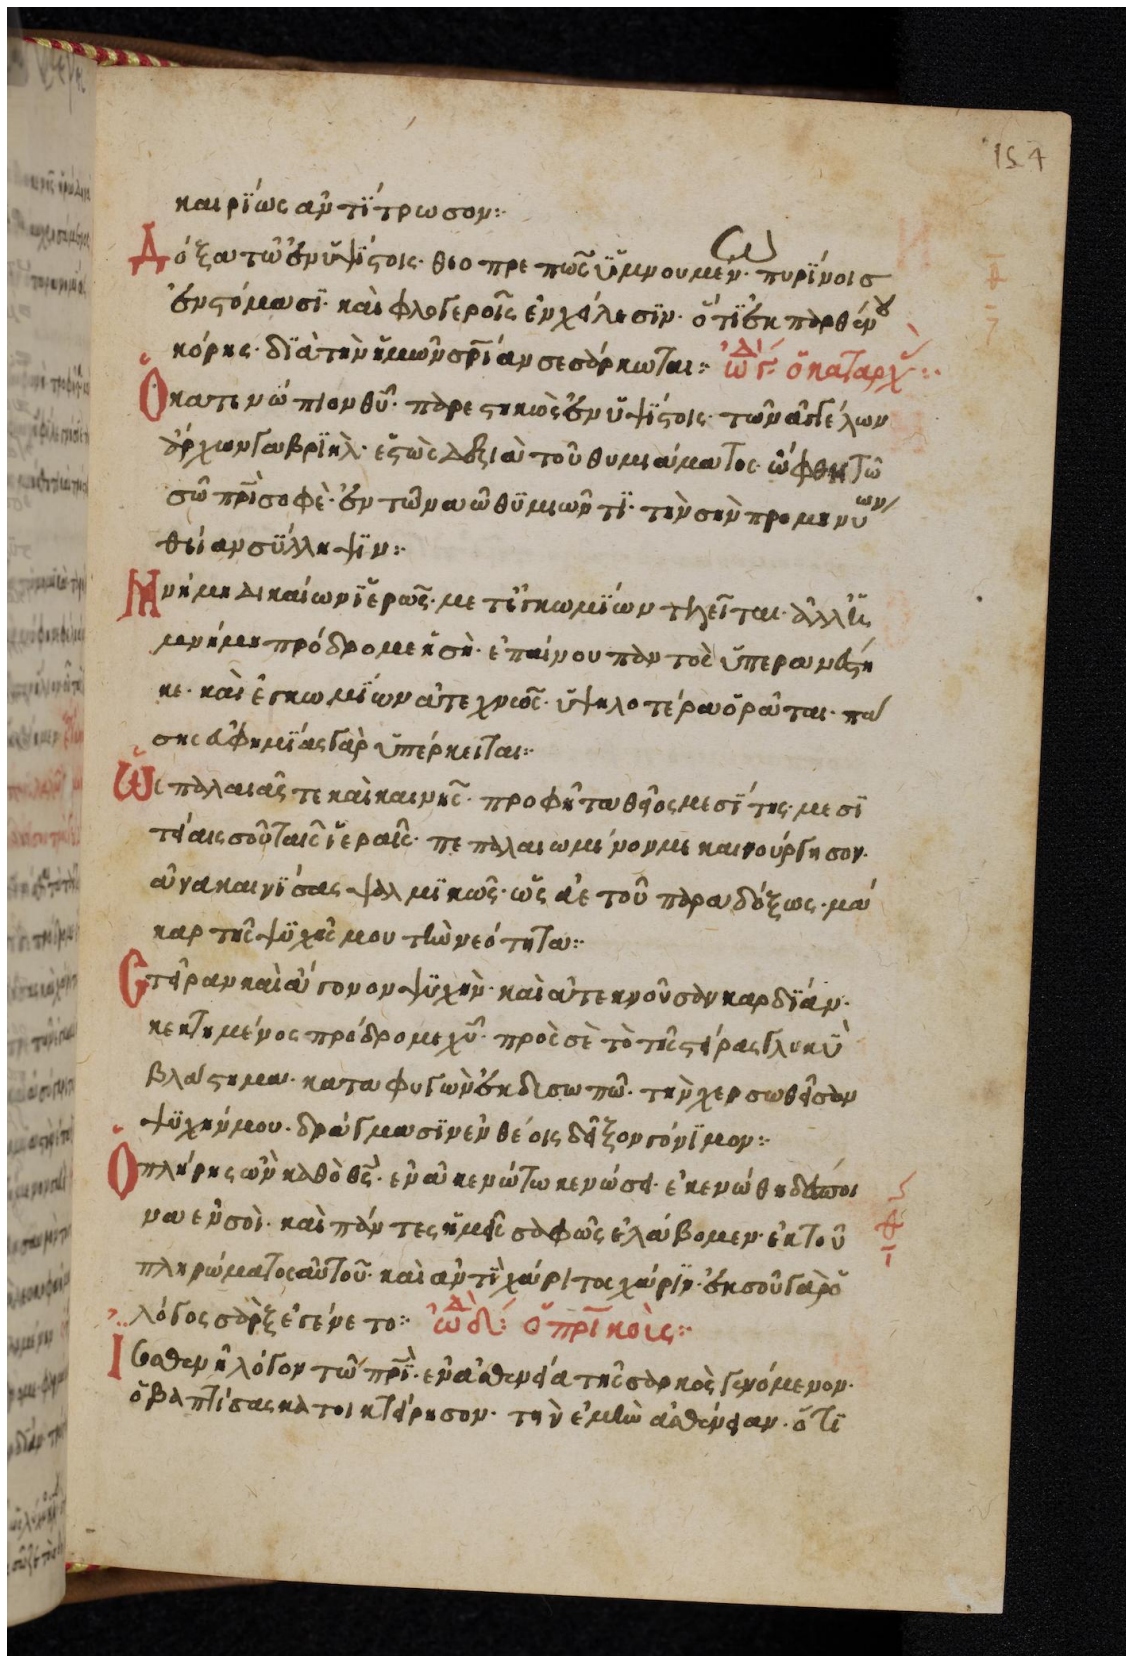 154
καιρΐως ἀντϊτρωσον:
Δόξα τῶ ἐν ὑψΐστοις· θεοπρεπῶς ὑμνουμεν· πυρΐνοισ
ἐν στόμασϊ· καὶ φλογεροῖς ἐν χείλεσϊν· ὅτϊ ἐκ παρθένου
κόρης· δϊὰ τὴν ἡμῶν σρΐαν σεσάρκωται: ὠδὴ γ΄ ὁ κατ ἀρχὰς:
Ὁ κατενώπιον θῦ· παρεστηκὼς ἐν ὑψΐστοις· τῶν ἀγγέλων
ἄρχων γαβρϊήλ· ἑστὼς δεξιὰ τοῦ θυμιάματος· ὤφθη τῶ
σῶ πρῒ σοφὲ· ἐν τῶ ναῶ θϋμιῶντϊ· τὴν σὴν προμηνύων
θείαν σΰλληψϊν:
Μνήμη δικαίων ϊερῶς· μετ ἐγκωμϊών τελεῖται· ἀλλ ἡ
μνήμη πρόδρομε ἡ σὴ· ἐπαίνου παντὸς ὑπεραναβέβη
κε· καὶ ἐγκωμϊων ἀτεχνῶς· ὑψηλοτέρα ὁρᾶται· πά
σης εὐφημΐας γὰρ ὑπέρκειται:
Ὡς παλαιᾶς τε καὶ καινῆς· προφῆτα θεῖος μεσΐτης· μεσϊ
τείαις σοῦ ταῖς ϊεραῖς· πεπαλαιωμένον με καινούργησον·
ἀνακαινΐσας ψαλμϊκῶς· ὡς ἀετοῦ παραδόξως· μά
καρ τῆς ψϋχῆς μου τὴν νεότητα:
Στεῖραν καὶ ἄγονον ψϋχὴν· καὶ ἀτεκνοῦσαν καρδΐαν·
κεκτημένος πρόδρομε χῦ· πρὸς σὲ τὸ τῆς στείρας γλυκὺ
βλάστημα· καταφυγὼν ἐκδυσωπῶ· τὴν χερσωθεῖσαν
ψϋχήν μου· δράγμασϊν ἐνθέοις δεῖξον γόνϊμον:
Ὁ πλήρης ὢν καθὸ θς· ἐν ἀκενώτω κενώσει· ἐκενώθη δέσποι
να ἐν σοὶ· καὶ πάντες ἡμεῖς σαφῶς ἐλάβομεν· ἐκ τοῦ
πληρώματος αὐτοῦ· καὶ ἀντὶ χάριτος χάρϊν· ἐκ σοῦ γὰρ ὁ
λόγος σὰρξ ἐγένετο: ὠδὴ δ΄: ὁ πρικοὺς:
Ἰσοσθενῆ λόγον τῶ πρὶ· ἐν ἀσθενεία τῆς σαρκὸς γενόμενον·
ὁ βαπτίσας κατοικτείρησον· τὴν ἐμὴν ἀσθένειαν· ὅτϊ